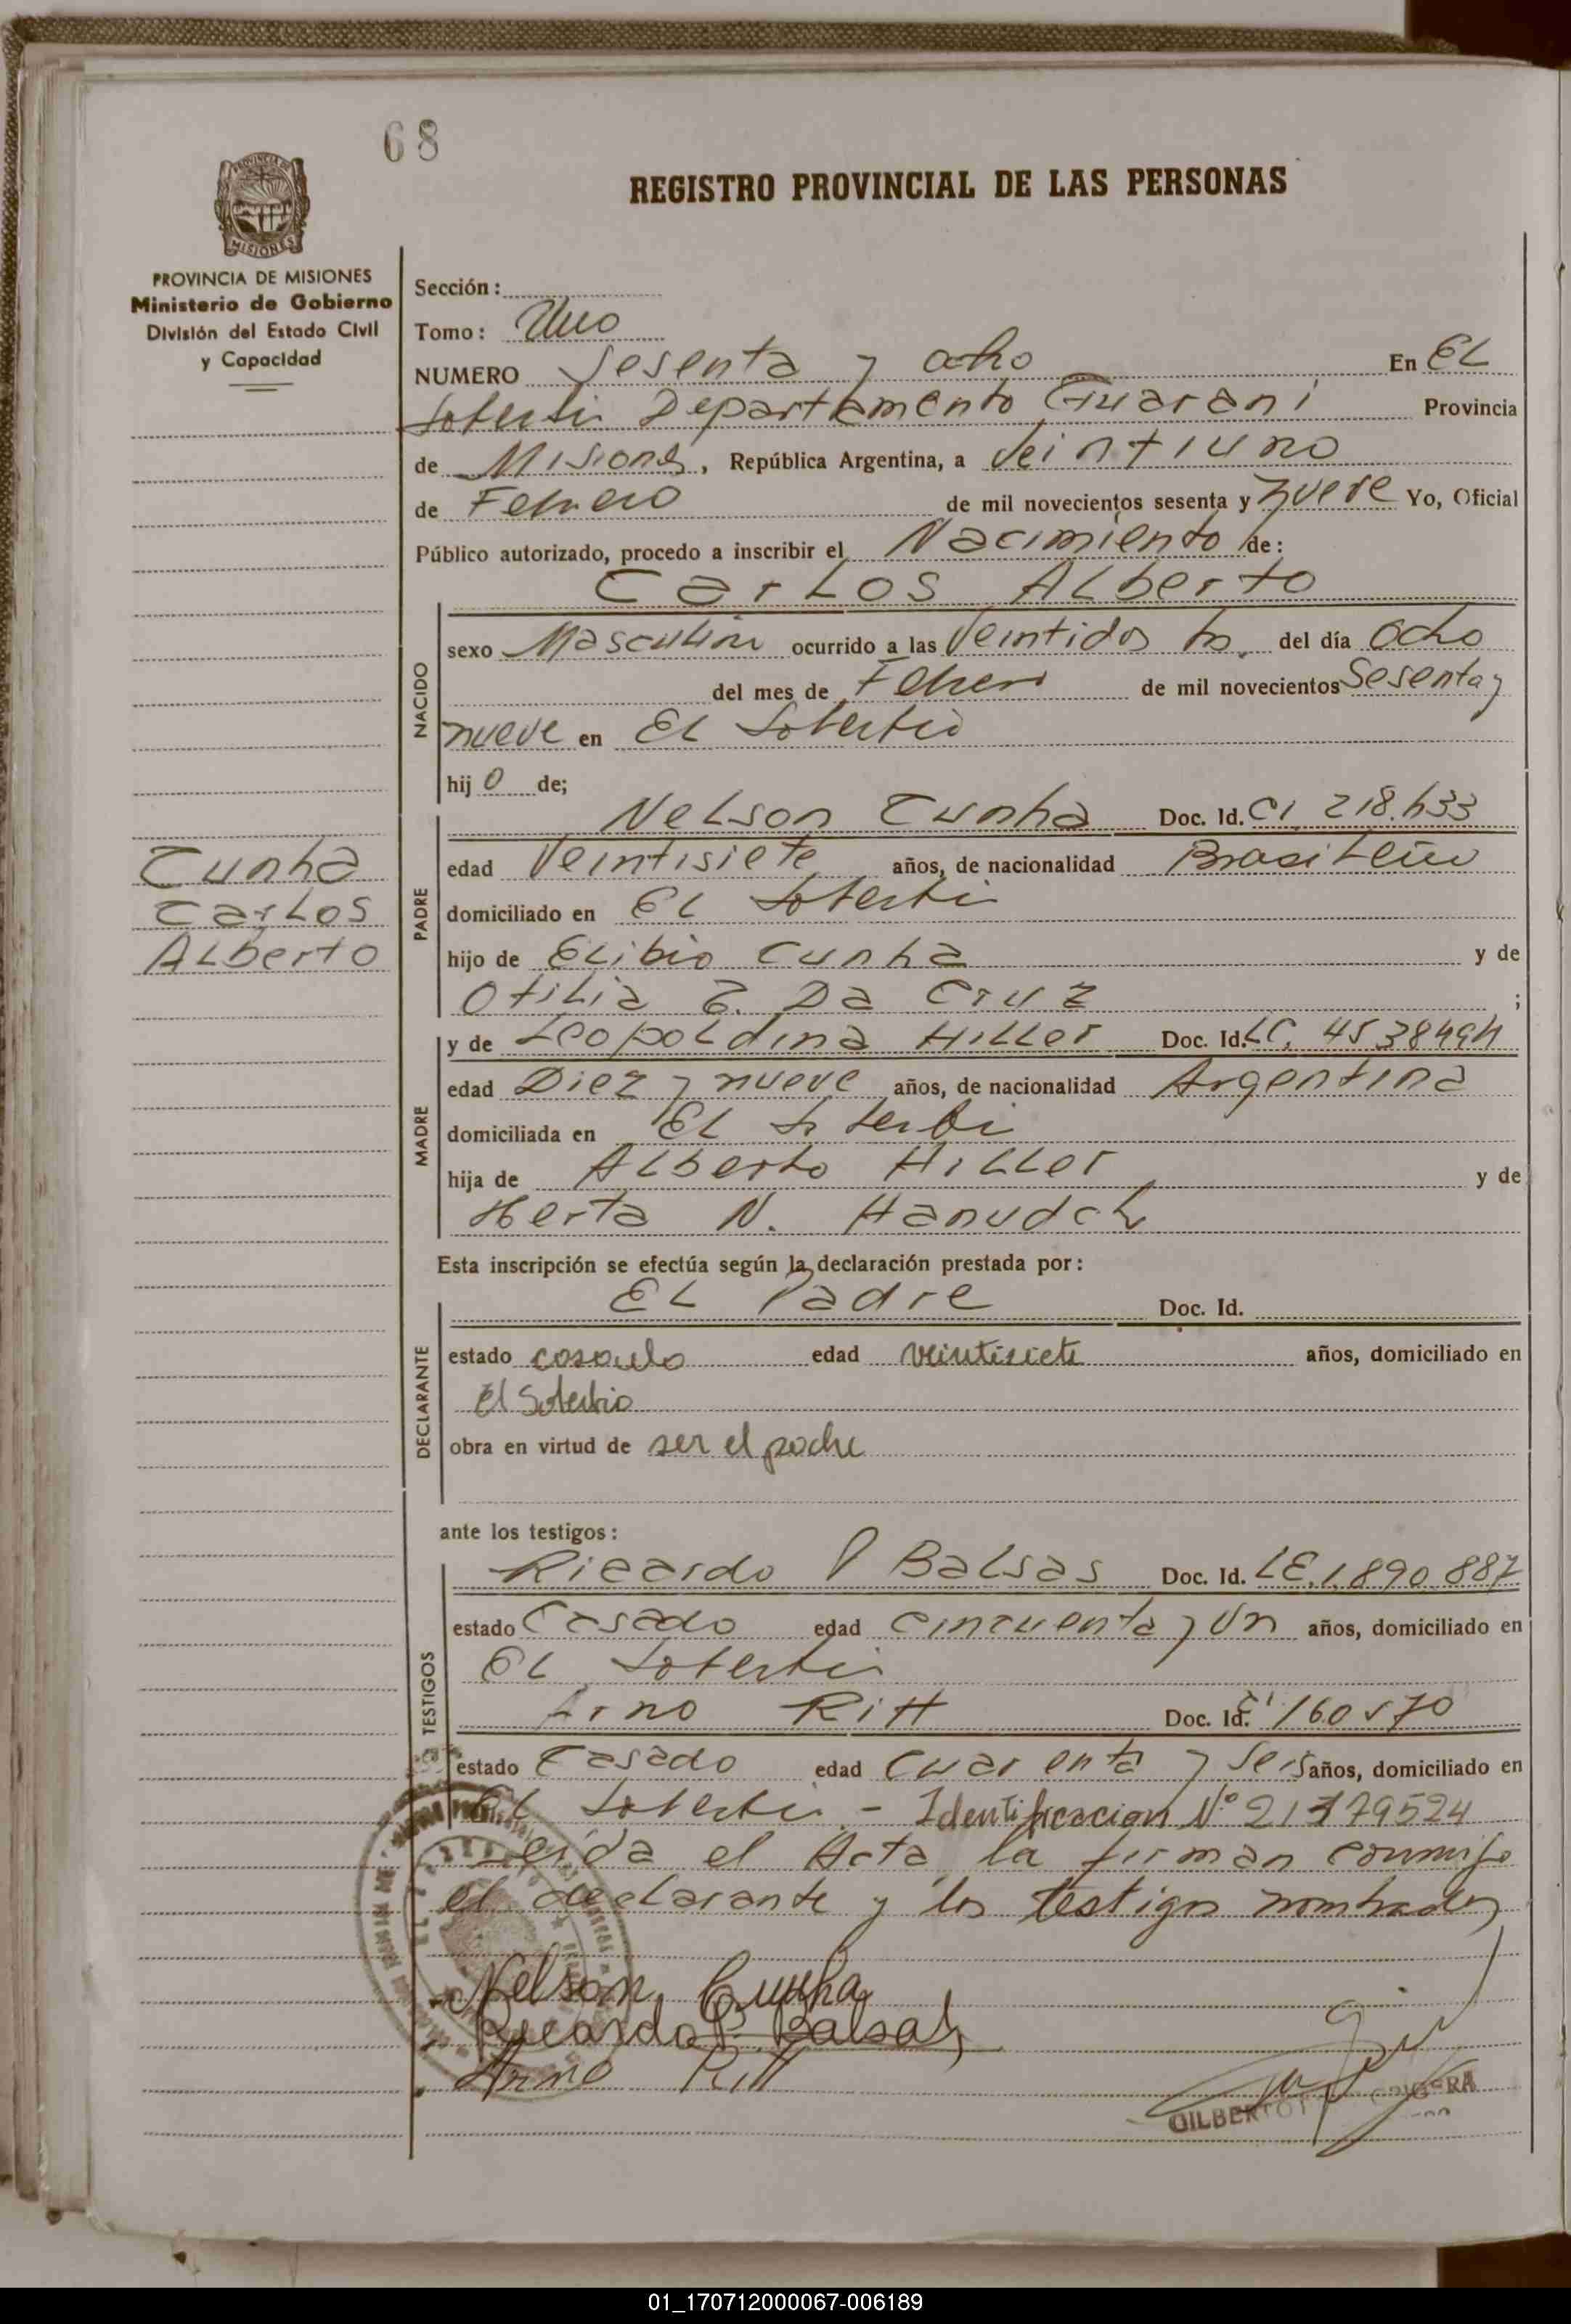 68
REGISTRO PROVINCIAL DE LAS PERSONAS
PROVINCIA DE MISIONES
MISIONES
PROVINCIA DE MISIONES
Ministerio de Gobierno
División del Estado Civil
y Capacidad
Sección:
Tomo: Uno
NUMERO Sesenta y ocho En EL
Soberbio Departamento Guaraní Provincia
de Misiones, República Argentina, a Veintiuno
de Febrero de mil novecientos sesenta y nueve Yo, Oficial
Público autorizado, procedo a inscribir el Nacimiento de:
Carlos Alberto
NACIDO
sexo Masculino ocurrido a las Veintidos hs. del día Ocho
del mes de Febrero de mil novecientos Sesenta y
nueve en EL Soberbio
hij o de;
Cunha
Carlos
Alberto
PADRE
Nelson Cunha Doc. Id. CI 218.633
edad Veintisiete años, de nacionalidad Brasileño
domiciliado en EL Soberbio
hijo de Elibio Cunha y de
Otilia Z. Da Cruz ;
MADRE
y de Leopoldina Hiller Doc. Id. LC.
edad Diez y nueve años, de nacionalidad Argentina
domiciliada en EL Soberbio
hija de Alberto Hiller y de
Herta N.
Esta inscripción se efectúa según la declaración prestada por:
DECLARANTE
EL Padre Doc. Id.
estado casado edad veintisiete años, domiciliado en
El Soberbio
obra en virtud de ser el padre
ante los testigos:
TESTIGOS
Ricardo P Balsas Doc. Id. LE.1.890.887
estado Casado edad Cincuenta y Un años, domiciliado en
EL Soberbio
Arno Ritt Doc. Id. CI 160570
estado Casado edad Cuarenta y Seis años, domiciliado en
EL Soberbio - Identificacion Nº 21179524
Leida el Acta la firman conmigo
el declarante y los testigos nombrados
Nelson Cunha
Ricardo P. Balsas
Arno Ritt
01_170712000067-006189